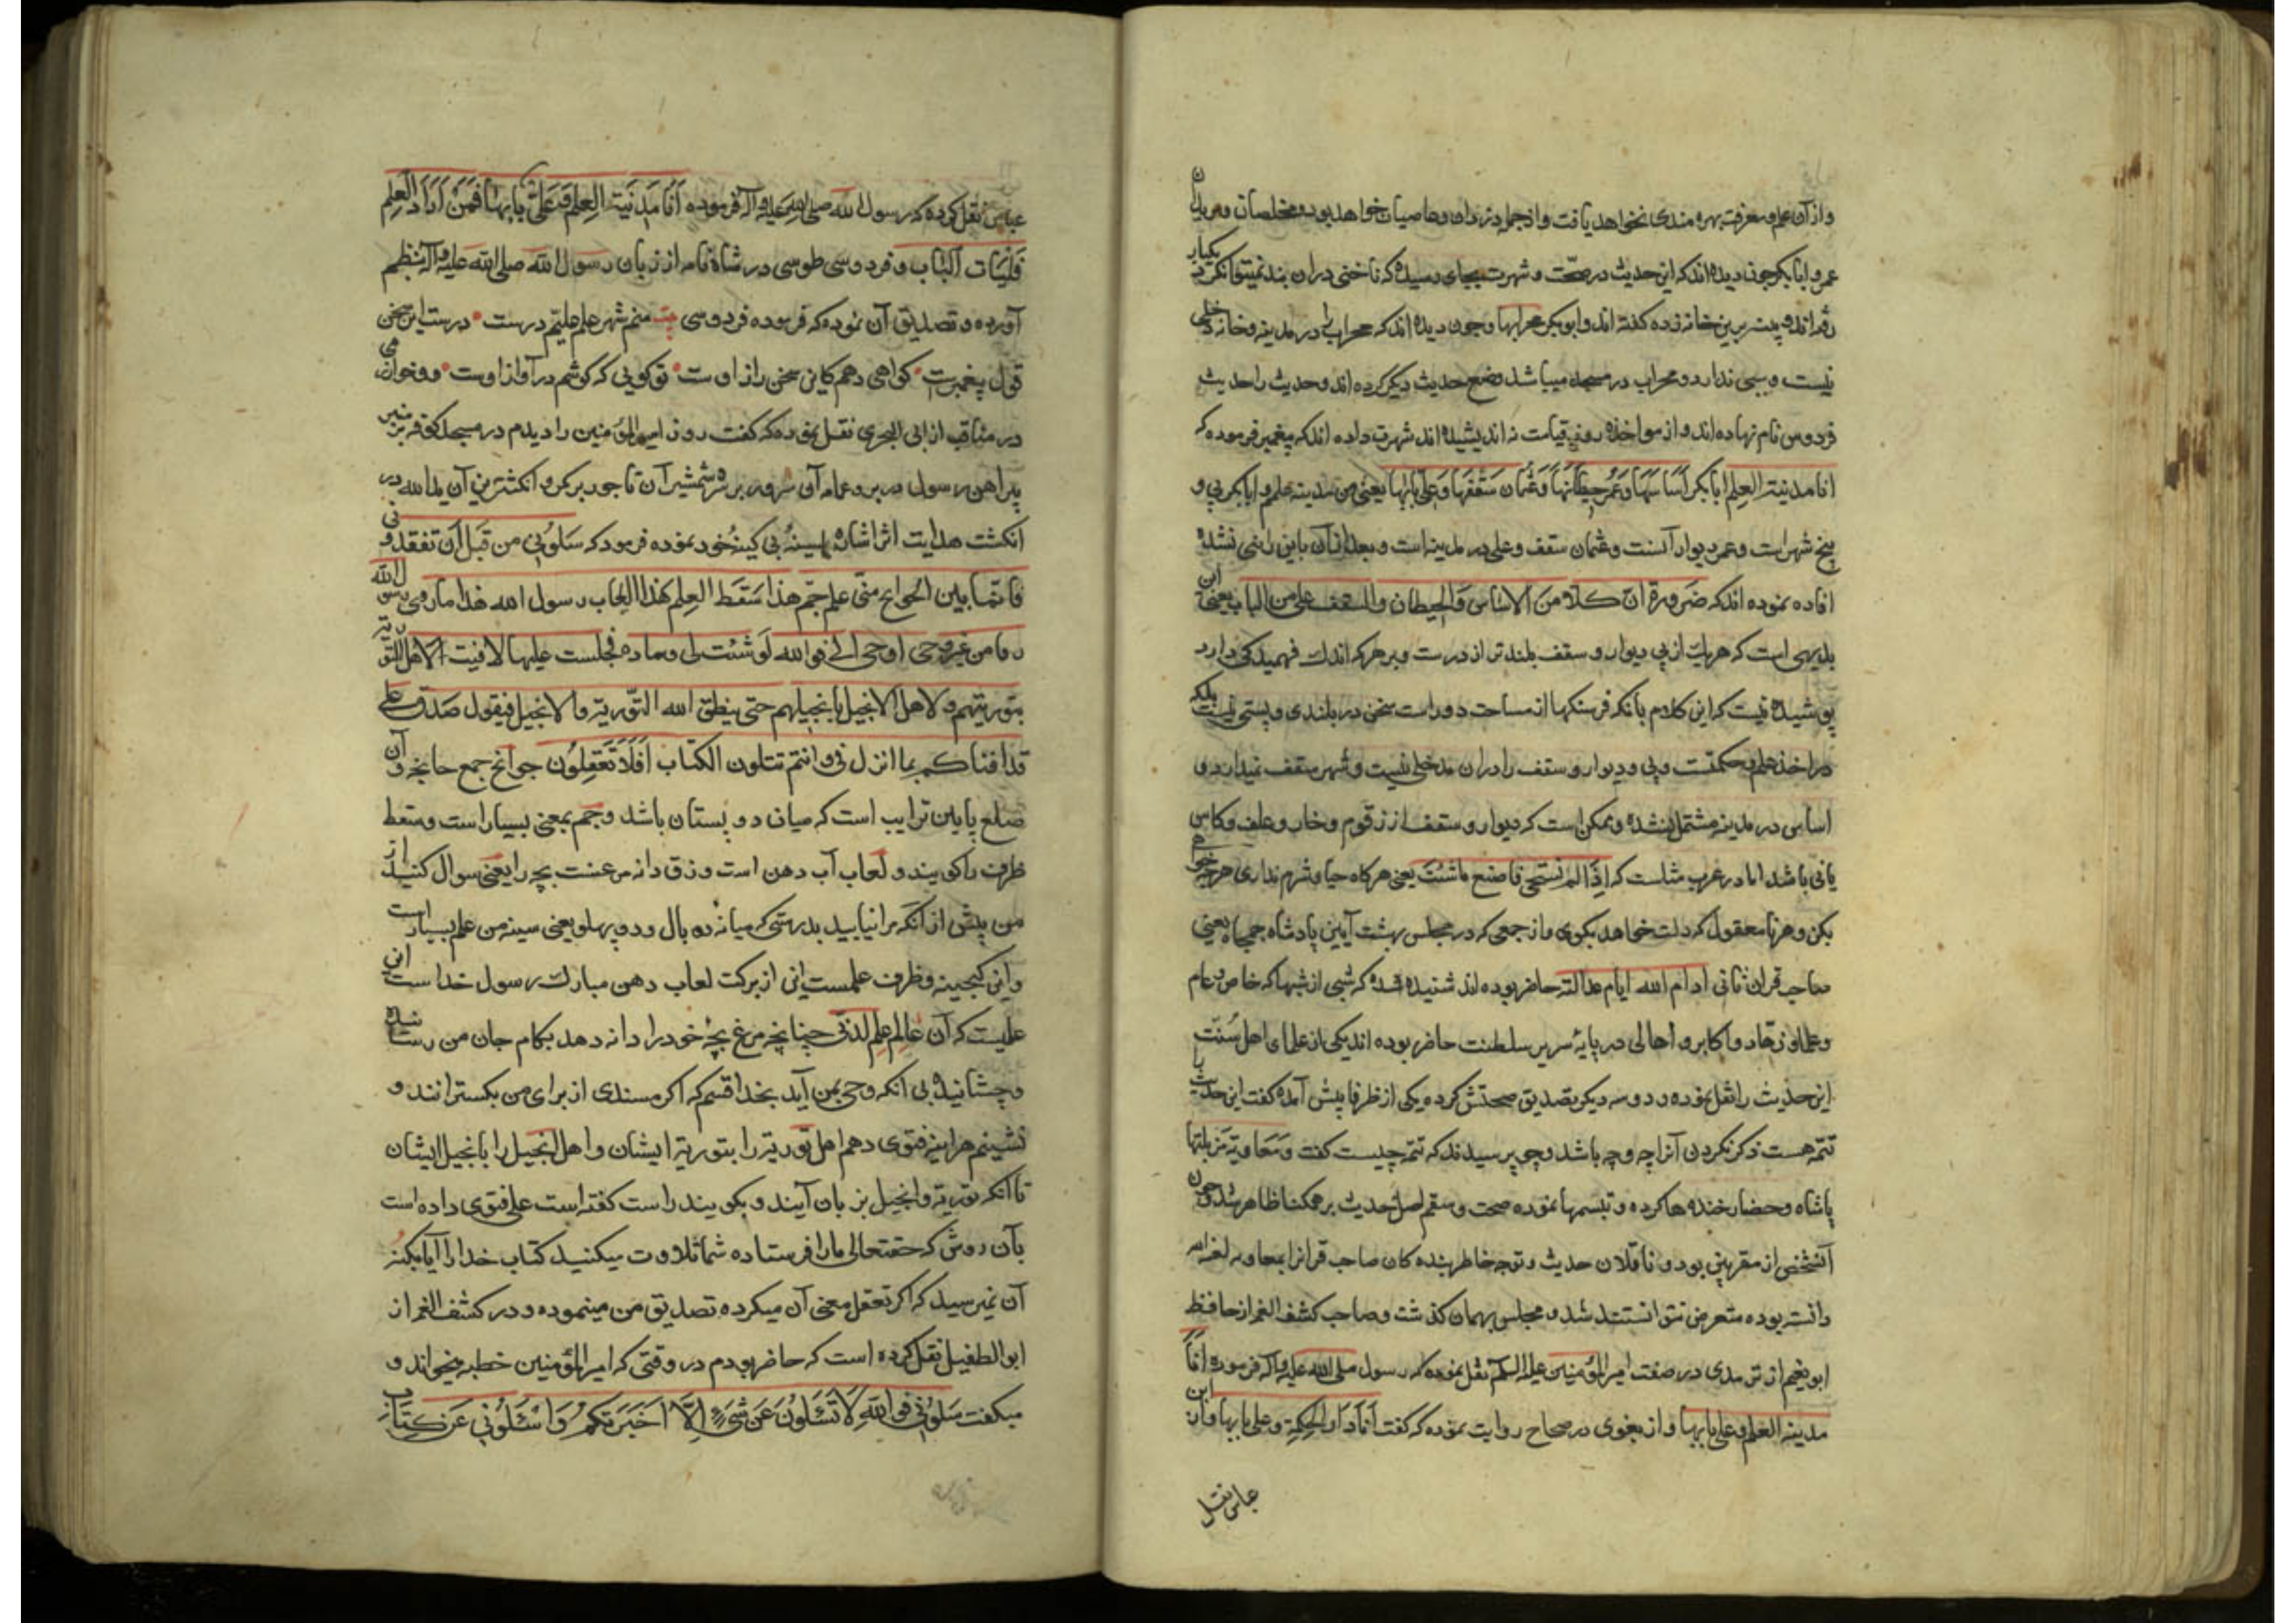 و از آن علم و معرفت بهره مندی نخواهد یافت و از جمله دزدان و عاصیان خواهد بود و مخلصان
عمر و ابابکر چون دیده اند که این حدیث در صحت و شهرت بجای رسیده که ناخنی دران بند نمیتوانکرد یکبار
خانه زده گفته اند وابوبکر محرابها و چون دیده اند که محرابی در مدینه و خانه دخلی
نیست و سببی ندارد و محراب در مسجد میباشد وضع حدیث دیگر کرده اند و حدیث را حدیث
فردوس نام نهاده اند و از مواخذه روز قیامت نه اندیشیده اند شهرت داده اند که پیغمبر فرموده که
انا مدینة العلم ابابکر اساسها و عمر حیطانها و عثمان سقفها و علی بابها یعنی من مدینه علم و ابابکر پی و
بیخ شهر است و عمر دیوار آنست و عثمان سقف و علی در مدینه است و بعد از آن باین راضی نشده
افاده نموده اند که ضرورة ان کلا من الاساس والحیطان والسقف اعلی من الباب یعنی این
بدیهی است که هریک از پی و دیوار و سقف بلندتر از درست و بر هرکه اندک فهمیدگی دارد
پوشیده نیست که این کلام بانکه فرسنگها از مساحت دور است سخن در بلندی و پستی نیست بلکه
در اخذ علم و حکمتست و پی و دیوار و سقف را دران مدخلی نیست و شهر سقف نمیدارد و
اساس در مدینه مشتمل نشده و ممکن است که دیوار و سقف از زقوم و خار و علف و کاس
یانی باشد اما در عرب مثلست که اذا لم تستحی فاصنع ماشئت یعنی هرگاه حیا و شرم نداری هرچه خواهی
بکن و هر نامعقول که دلت خواهد بکوی و از جمعی که در مجلس بهشت آیین پادشاه جمجاه یعنی
صاحب قران ثانی ادام الله ایام عدالته حاضر بوده اند شنیده شده که شبی از شبها که خاص و عام
و علما و زهاد و اکابر و اهالی در پایهٔ سریر سلطنت حاضر بوده اند یکی از علمای اهل سنت
این حدیث را نقل نموده و دو سه دیگر تصدیق صحتش کرده یکی از ظرفا پیش آمده گفت این حدیث را
تتمه هست ذکر نکردن آنرا چه وجه باشد و چون پرسیدند که تتمه چیست گفت و معاویة مزبلتها
پاشاه و حضار خنده ها کرده و تبسمها نموده صحت و سقم اصل حدیث بر همکنان ظاهر شد و چون
آنشخص از مقربین بود و ناقلان حدیث و توجه خاطر بنده کان صاحب قرانرا بمعاویه
دانسته بوده متعرض نتوانستند شد و مجلس بهمان گذشت و صاحب کشف الغمه از حافظ
ابونعیم از ترمدی در صفت امیرالمؤمنین علیه السلم نقل نموده که رسول صلی الله علیه و آله فرموده انا
مدینه العلم و علی بابها و از بغوی در صحاح روایت نموده که گفت انا دار الحکمة و علی بابها و از ابن
عباس نقل
عباس نقل کرده که رسول الله صلی الله علیه و آله فرموده انا مدینة العلم و علی بابها فمن اراد العلم
فلیات الباب و فردوسی طوسی در شاه نامه از زبان رسول الله صلی الله علیه و آله بنظم
آورده و تصدیق آن نموده که فرموده فردوسی بیت منم شهر علم علیم درست درست این سخن
قول پیغمبرست کواهی دهم کاین سخن راز اوست تو کویی که کوشم در آواز اوست و خوارزمی
در مناقب از ابی البحری نقل نموده که گفت روز امیرالمؤمنین را دیدم در مسجد کوفه بر منبر
پیراهن رسول در بر و عمامه آن سرور بر سر شمشیر آن تاجور بر کمر و انکشترین آن یدالله در
انکشت هدایت اثر اشاره بسینه بی کینهٔ خود نموده فرمود که سلونی من قبل ان تفقدونی
فانما بین الجوانح منی علم جم هذا سقط العلم هذا لعاب رسول الله هذا ما زقنی رسول الله
زقا من غیر وحی اوحی الی فوالله لو شئت لی وساده فجلست علیها لافتیت لاهل التوریة
بتوریتهم و لاهل الانجیل بانجیلهم حتی ینطق الله التوریة والانجیل فیقول صدق علی
قد افتاکم بما انزل فی و انتم تتلون الکتاب افلا تعقلون جوانح جمع جانحه و آن
ضلع پایین ترایب است که میان دو پستان باشد و جم بمعنی بسیار است و سقط
ظرف را کویند و لعاب آب دهن است و زق دانه مرغست بچه را یعنی سوال کنید از
من پیش از انکه مرا نیابید بدرستی که میانه ده بال و دو پهلو یعنی سینه من علم بسیار است
و این کنجینه و ظرف علمست این از برکت لعاب دهن مبارک رسول خداست این
علمیست که آن عالم علم لدنی چنانچه مرغ بچهٔ خود را دانه دهد بکام جان من رسانیده
و چشانیده بی آنکه وحی بمن آید بخدا قسم که اکر مسندی از برای من بکسترانند و
نشینم هراینه فتوی دهم اهل توریة را بتوریة ایشان و اهل انجیل را بانجیل ایشان
تا آنکه توریة و انجیل بزبان آیند و بکویند راست گفته است علی فتوی داده است
بآن روش که حقتعالی ما را فرستاده شما تلاوت میکنید کتاب خدا را آیا بکنه
آن نمیرسید که اکر تعقل معنی آن میکرده تصدیق من مینموده و در کشف الغمه از
ابوالطفیل نقل کرده است که حاضر بودم در وقتی که امیرالمؤمنین خطبه میخواند و
میکفت سلونی فوالله لا تسئلون عن شیء الا اخبرتکم و اسئلونی عن کتاب